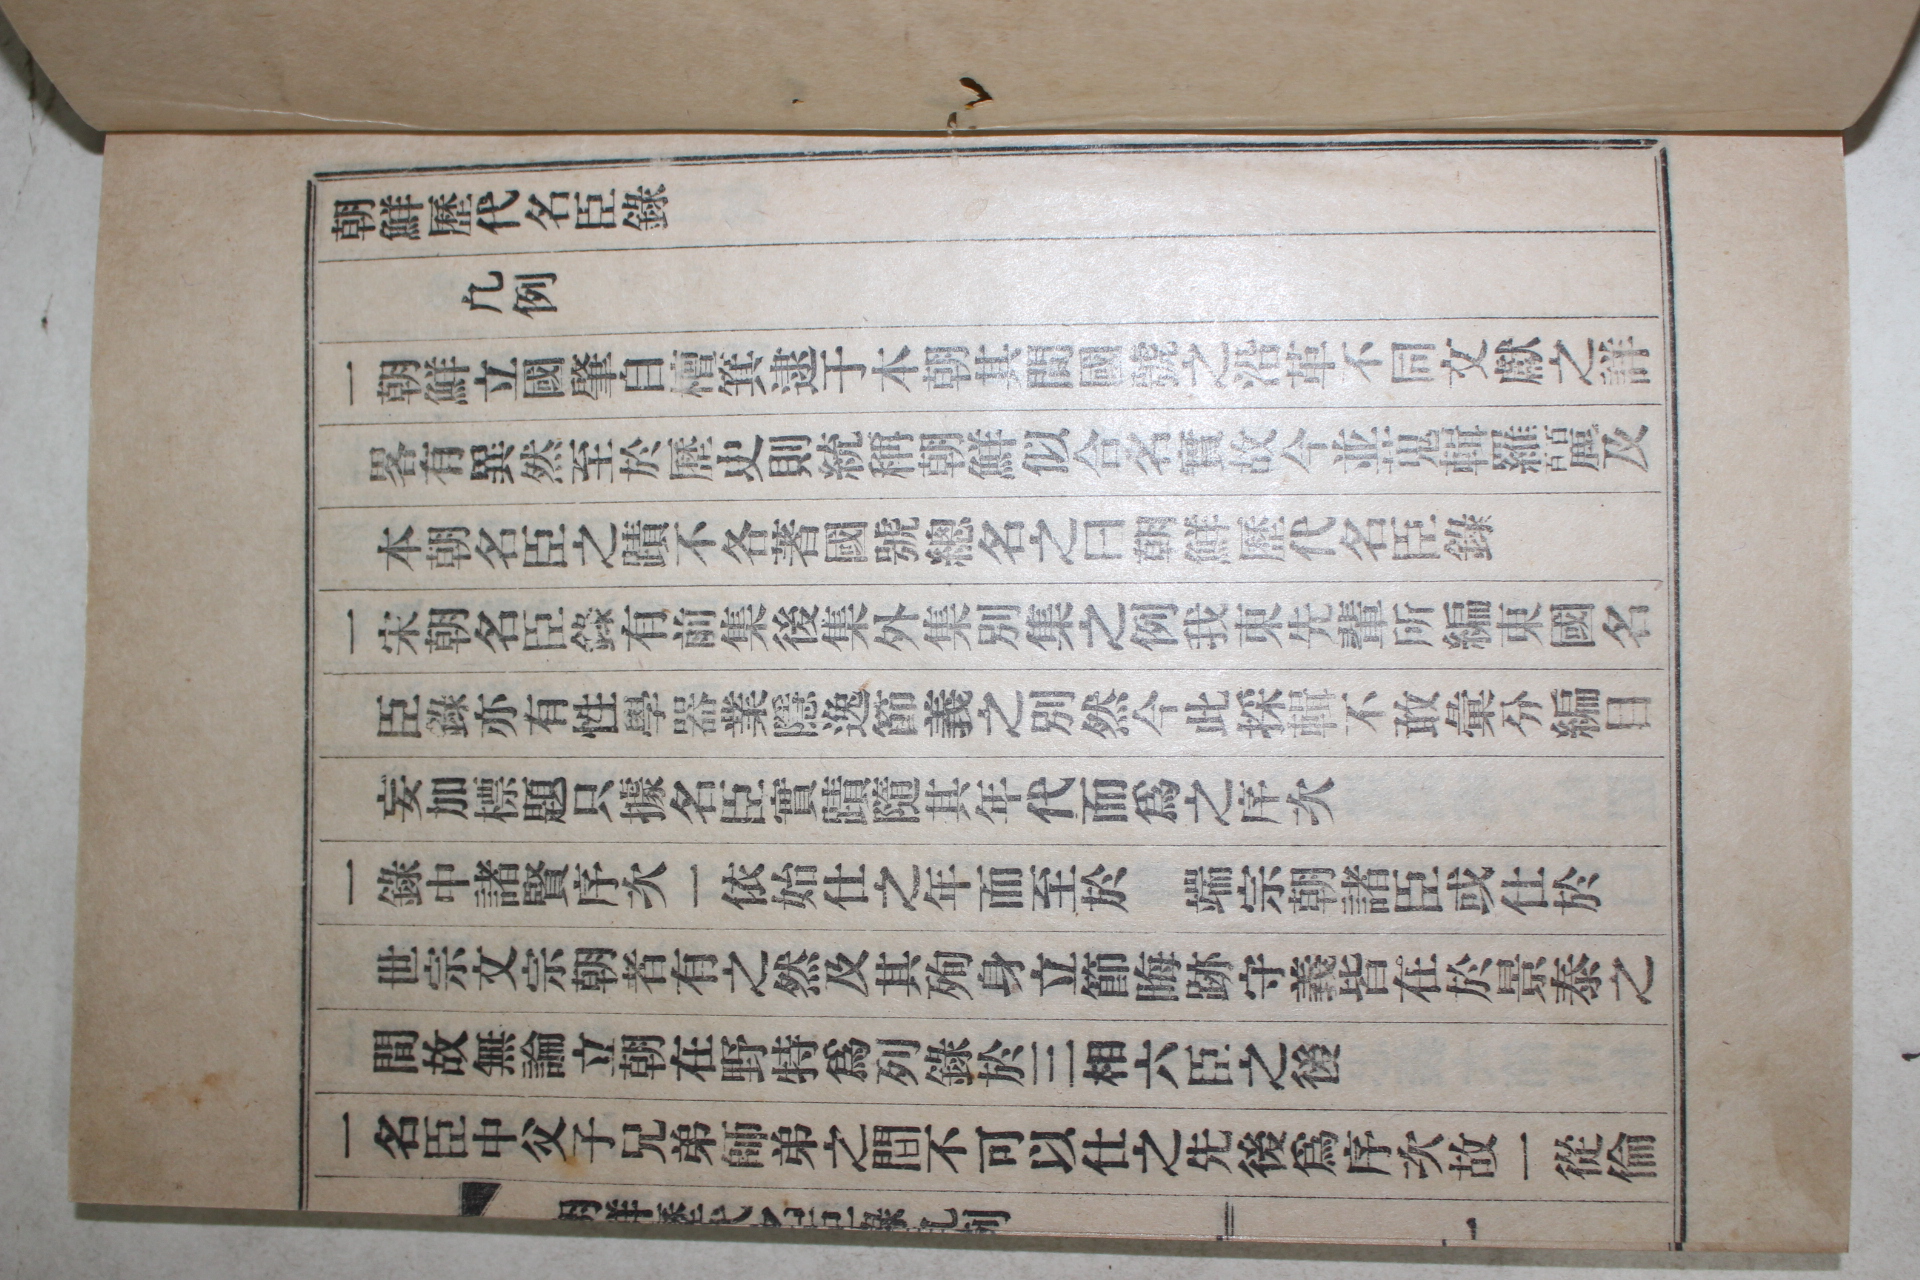 朝鮮歷代名臣錄
凡例
一朝鮮立國肇自檀箕逮于本朝其間國號之沿革不同文獻之詳
畧有異然至於歷史則統稱朝鮮似合名實故今並蒐輯羅麗及
本朝名臣之蹟不各著國號總名之曰朝鮮歷代名臣錄
一宋朝名臣錄有前集後集外集別集之例我東先輩所編東國名
臣錄亦有性學器業隱逸節義之別然今此採輯不敢彙分編目
妄加標題只據名臣實蹟隨其年代而爲之序次
一錄中諸賢序次一依始仕之年而至於 端宗朝諸臣或仕於
世宗文宗朝者有之然及其殉身立節晦跡守義皆在於景泰之
間故無論立朝在野特爲列錄於三相六臣之後
一名臣中父子兄弟師弟之間不可以仕之先後爲序次故一從倫
朝鮮歷代名臣錄凡例 一